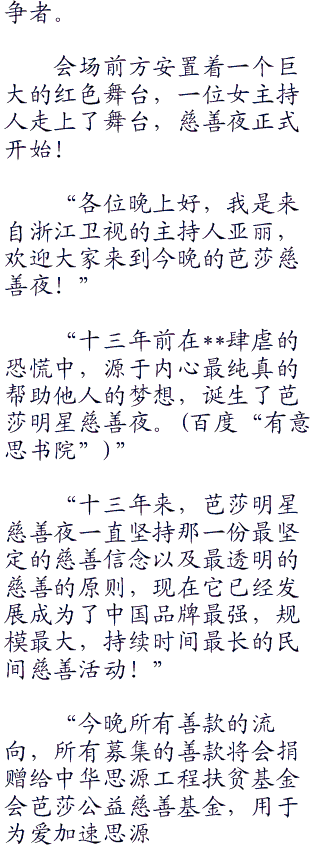 争者。
会场前方安置着一个巨
大的红色舞台，一位女主持
人走上了舞台，慈善夜正式
开始！
“各位晚上好，我是来
自浙江卫视的主持人亚丽，
欢迎大家来到今晚的芭莎慈
善夜！”
“十三年前在**肆虐的
恐慌中，源于内心最纯真的
帮助他人的梦想，诞生了芭
莎明星慈善夜。(百度“有意
思书院”)”
“十三年来，芭莎明星
慈善夜一直坚持那一份最坚
定的慈善信念以及最透明的
慈善的原则，现在它已经发
展成为了中国品牌最强，规
模最大，持续时间最长的民
间慈善活动！”
“今晚所有善款的流
向，所有募集的善款将会捐
赠给中华思源工程扶贫基金
会芭莎公益慈善基金，用于
为爱加速思源